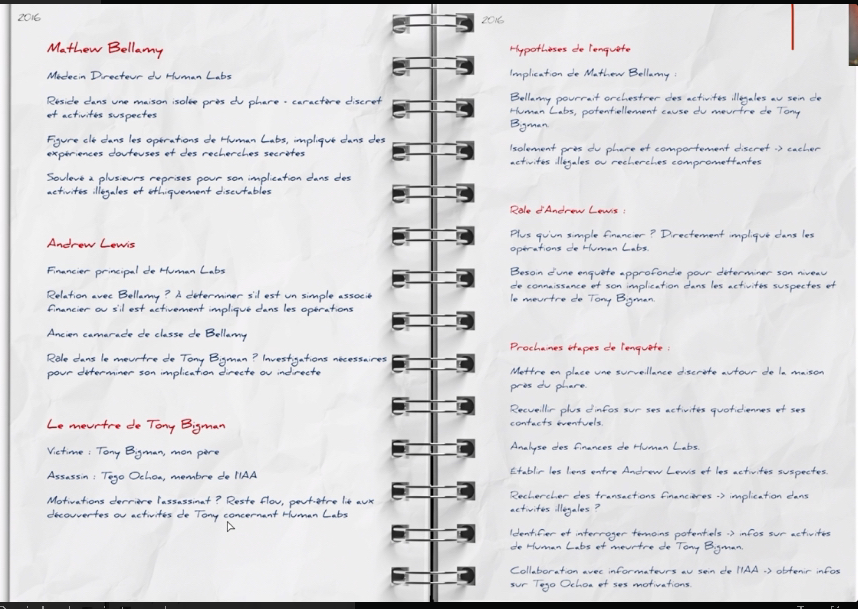 2016
Mathew Bellamy
Médecin Directeur du Human Labs
Réside dans une maison isolée près du phare - caractère discret
et activités suspectes
Figure clé dans les opérations de Human Labs, impliqué dans des
expériences douteuses et des recherches secrètes
Soulevé à plusieurs reprises pour son implication dans des
activités illégales et éthiquement discutables
Andrew Lewis
Financier principal de Human Labs
Relation avec Bellamy ? À déterminer s'il est un simple associé
financier ou s'il est activement impliqué dans les opérations
Ancien camarade de classe de Bellamy
Rôle dans le meurtre de Tony Bigman ? Investigations nécessaires
pour déterminer son implication directe ou indirecte
Le meurtre de Tony Bigman
Victime : Tony Bigman, mon père
Assassin : Tego Ochoa, membre de l'IAA
Motivations derrière l'assassinat ? Reste flou, peut-être lié aux
découvertes ou activités de Tony concernant Human Labs
2016
Hypothèses de l'enquête
Implication de Mathew Bellamy :
Bellamy pourrait orchestrer des activités illégales au sein de
Human Labs, potentiellement cause du meurtre de Tony
Bigman.
Isolement près du phare et comportement discret -> cacher
activités illégales ou recherches compromettantes
Rôle d'Andrew Lewis :
Plus qu'un simple financier ? Directement impliqué dans les
opérations de Human Labs.
Besoin d'une enquête approfondie pour déterminer son niveau
de connaissance et son implication dans les activités suspectes et
le meurtre de Tony Bigman.
Prochaines étapes de l'enquête :
Mettre en place une surveillance discrète autour de la maison
près du phare.
Recueillir plus d'infos sur ses activités quotidiennes et ses
contacts éventuels.
Analyse des finances de Human Labs.
Établir les liens entre Andrew Lewis et les activités suspectes.
Rechercher des transactions financières -> implication dans
activités illégales ?
Identifier et interroger témoins potentiels -> infos sur activités
de Human Labs et meurtre de Tony Bigman.
Collaboration avec informateurs au sein de l'IAA -> obtenir infos
sur Tego Ochoa et ses motivations.